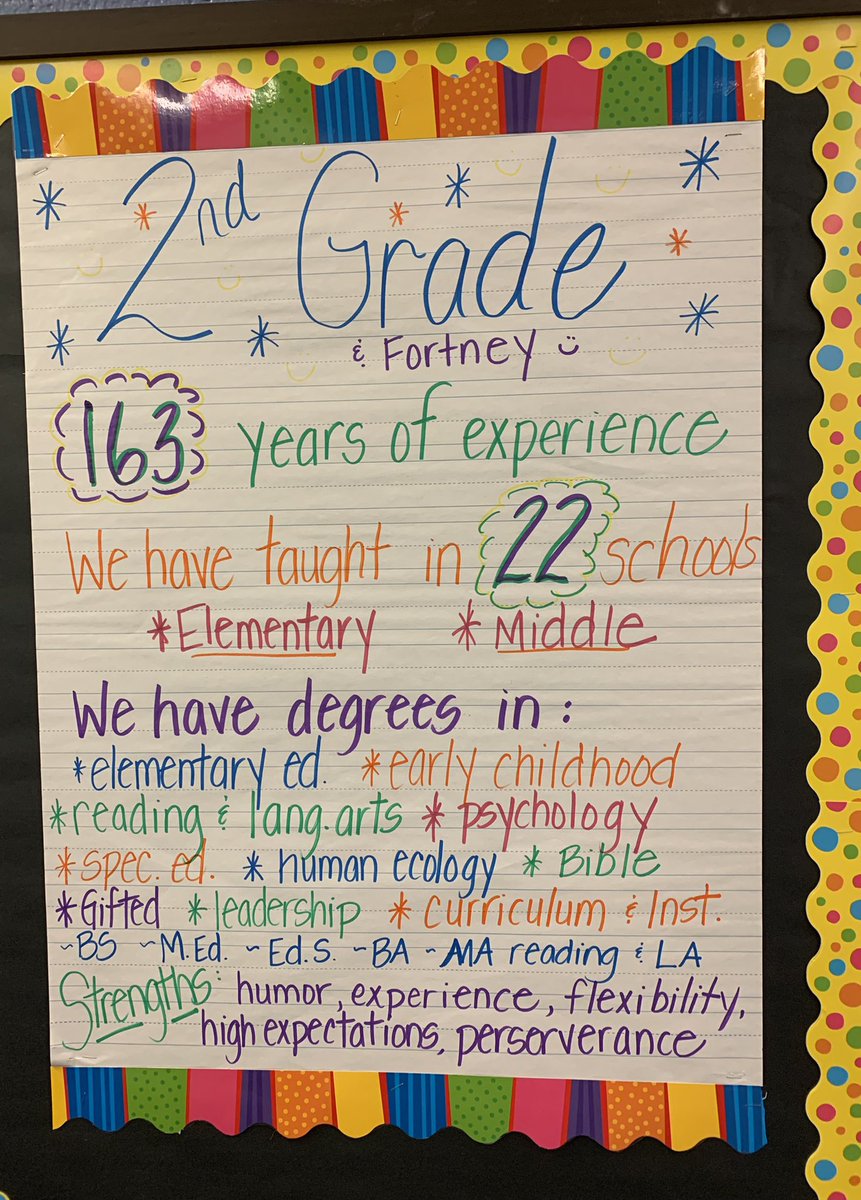 2nd Grade
& Fortney
163 years of experience
We have taught in 22 schools
*Elementary *Middle
We have degrees in:
*elementary ed. *early childhood
*reading & lang.arts *psychology
*spec. ed. *human ecology *Bible
*Gifted *leadership *curriculum & Inst.
~BS ~M.Ed. ~Ed.S. ~BA ~MA reading & LA
Strengths: humor, experience, flexibility,
high expectations, perserverance